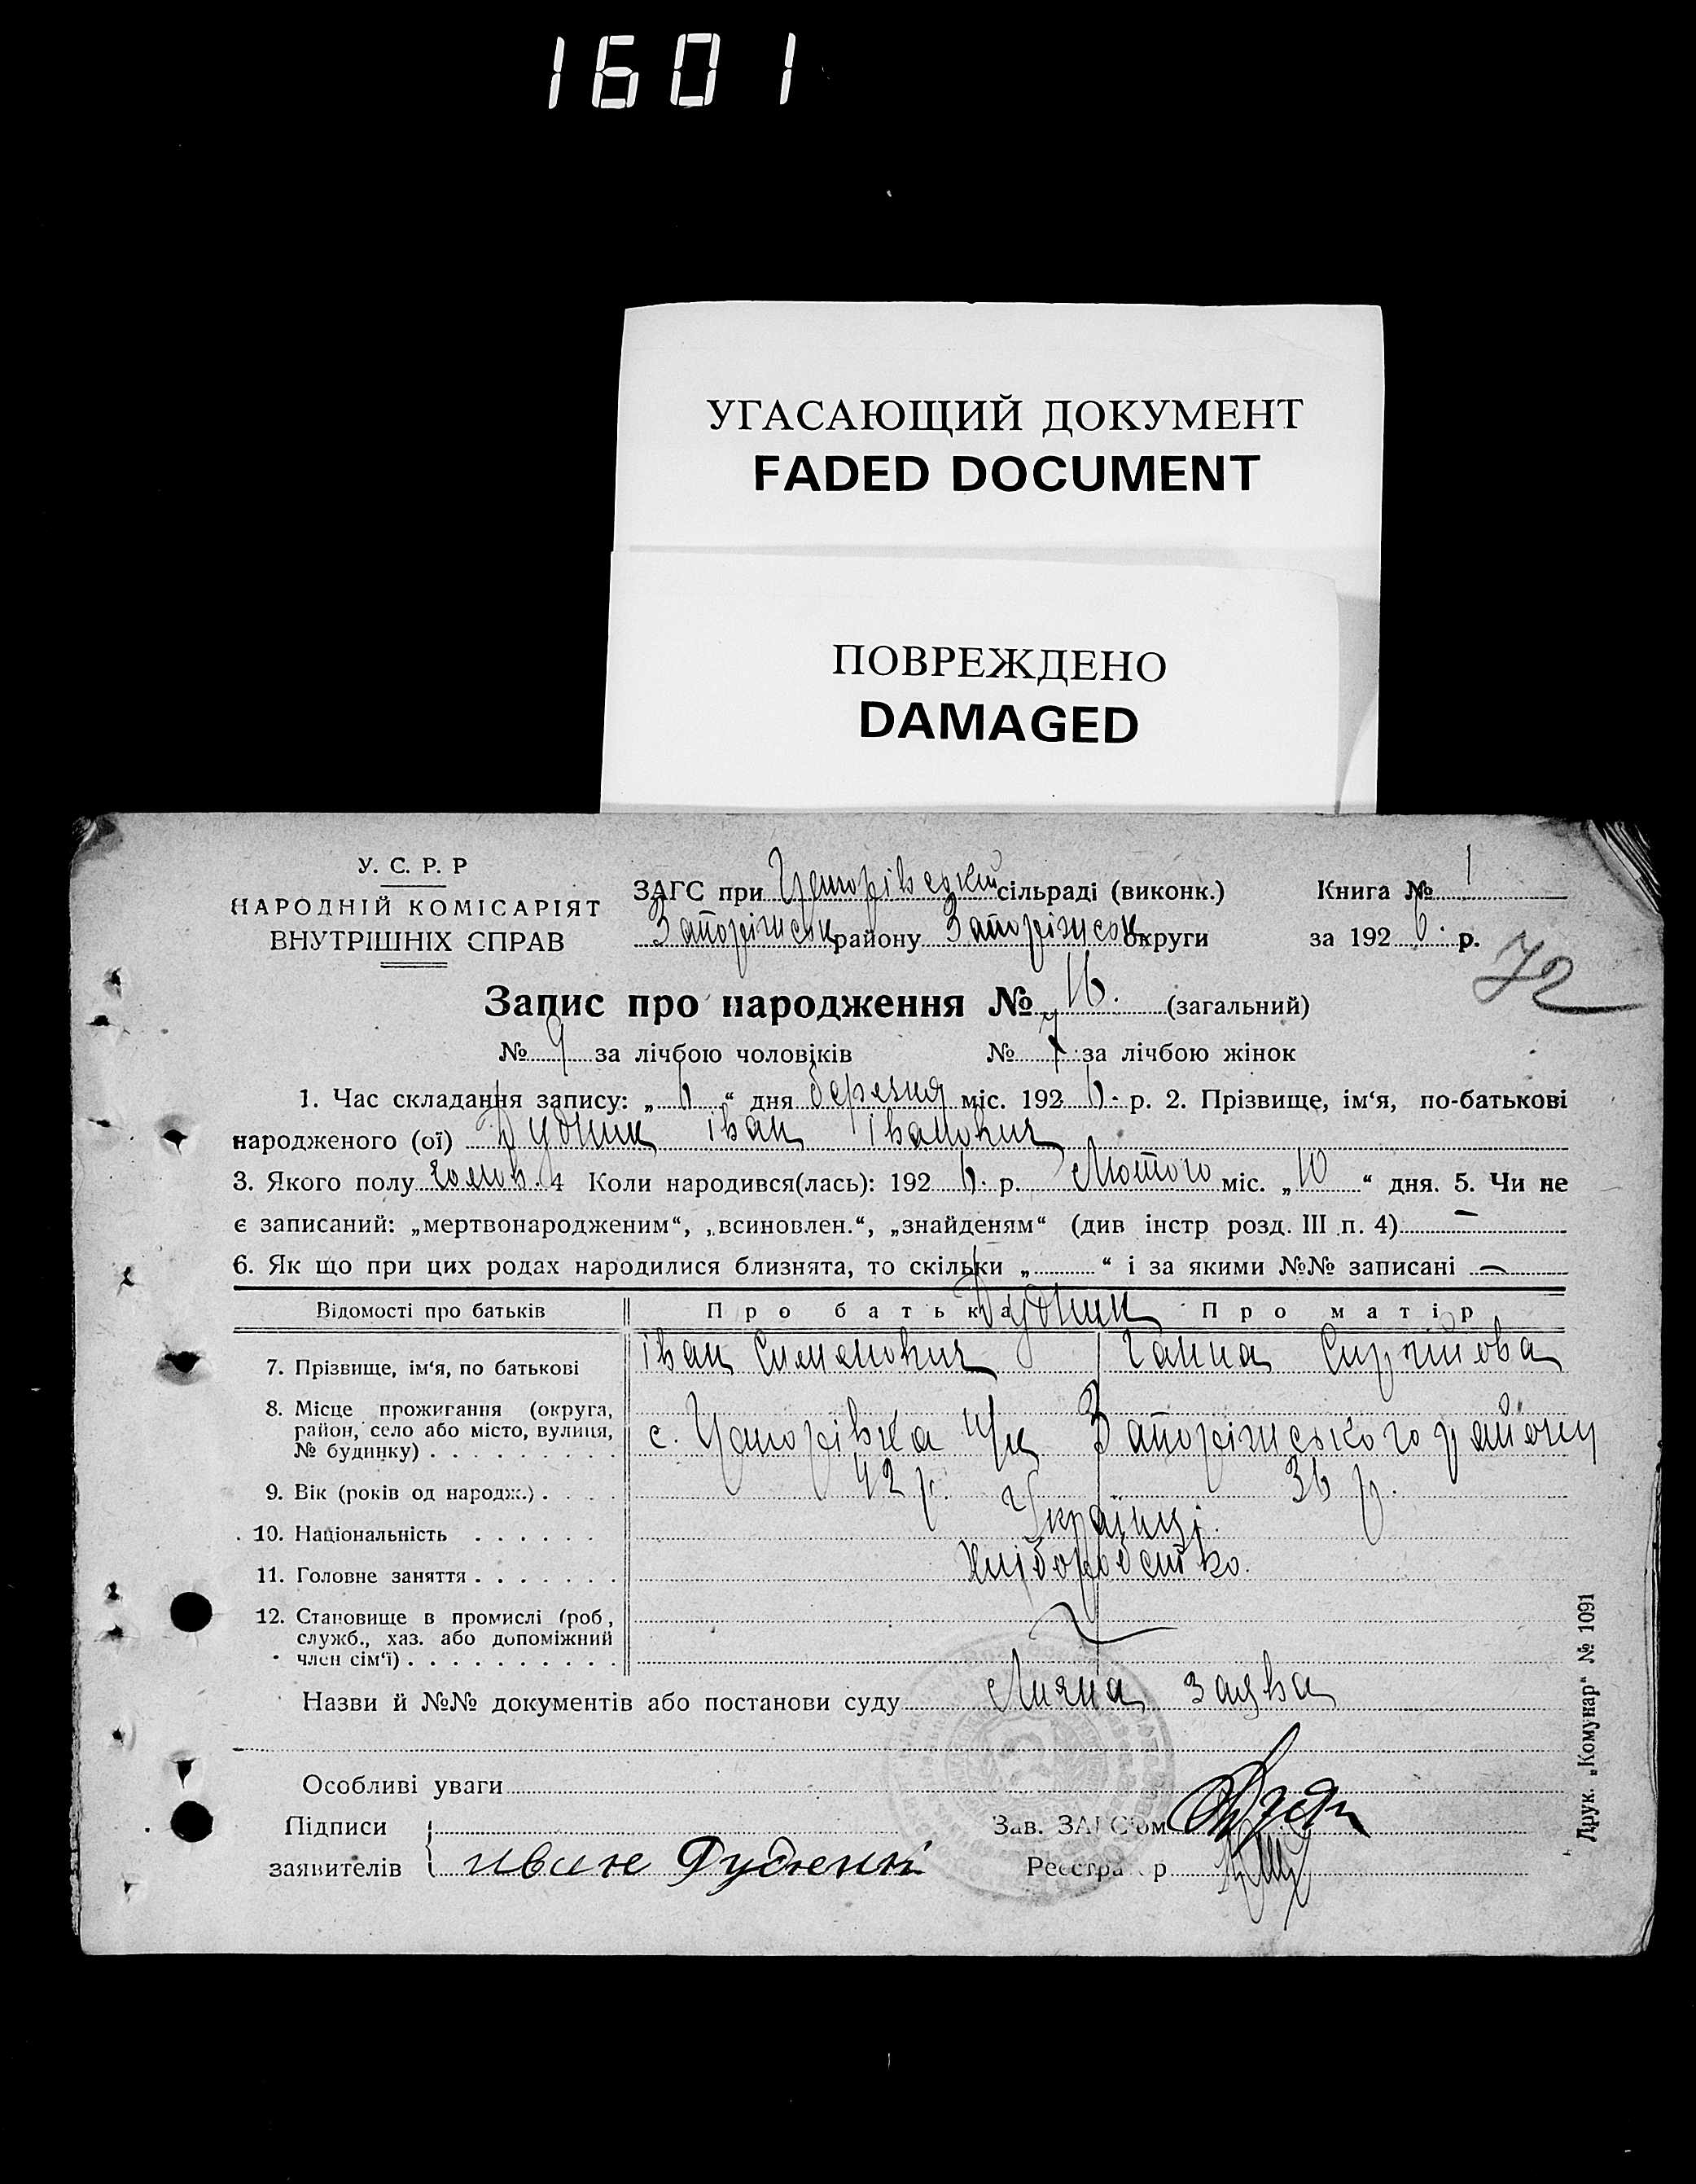 1601
УГАСАЮЩИЙ ДОКУМЕНТ
FADED DOCUMENT
ПОВРЕЖДЕНО
DAMAGED
У. С. Р. Р
НАРОДНІЙ КОМІСАРІЯТ
ВНУТРІШНІХ СПРАВ
ЗАГС при сільраді (виконк.)
Запоріжськ району Запоріжськ округи
Книга № 1
за 192 6. р.
72
Запис про народження № 16. (загальний)
№ 9 за лічбою чоловіків № 7 за лічбою жінок
1. Час складання запису: „ 6 “ дня березня міс. 192 6. р. 2. Прізвище, ім‘я, по-батькові
народженого (ої) Рудник Іван Іванович
3. Якого полу чолов. 4 Коли народився(лась): 192 6. р. Лютого міс. „ 10 “ дня. 5. Чи не
є записаний: „мертвонародженим“, „всиновлен.“, „знайденям“ (див інстр розд. III п. 4) —
6. Як що при цих родах народилися близнята, то скільки „ “ і за якими №№ записані —
Відомості про батьків Про батька Рудник Про матір
7. Прізвище, ім‘я, по батькові Іван Семенович Ганна
8. Місце прожигання (округа,
район, село або місто, вулиця,
№ будинку) с. Запоріжського району
9. Вік (років од народж.) 42 р. 36 р.
10. Національність Українці.
11. Головне заняття Хліборобство.
12. Становище в промислі (роб,
служб., хаз. або допоміжний
член сім‘ї)
Назви й №№ документів або постанови суду Лична заява
Особливі уваги
Підписи
заявителів Иван
Зав. ЗАГС‘ом
Реєстра р
Друк. „Комунар“ № 1091